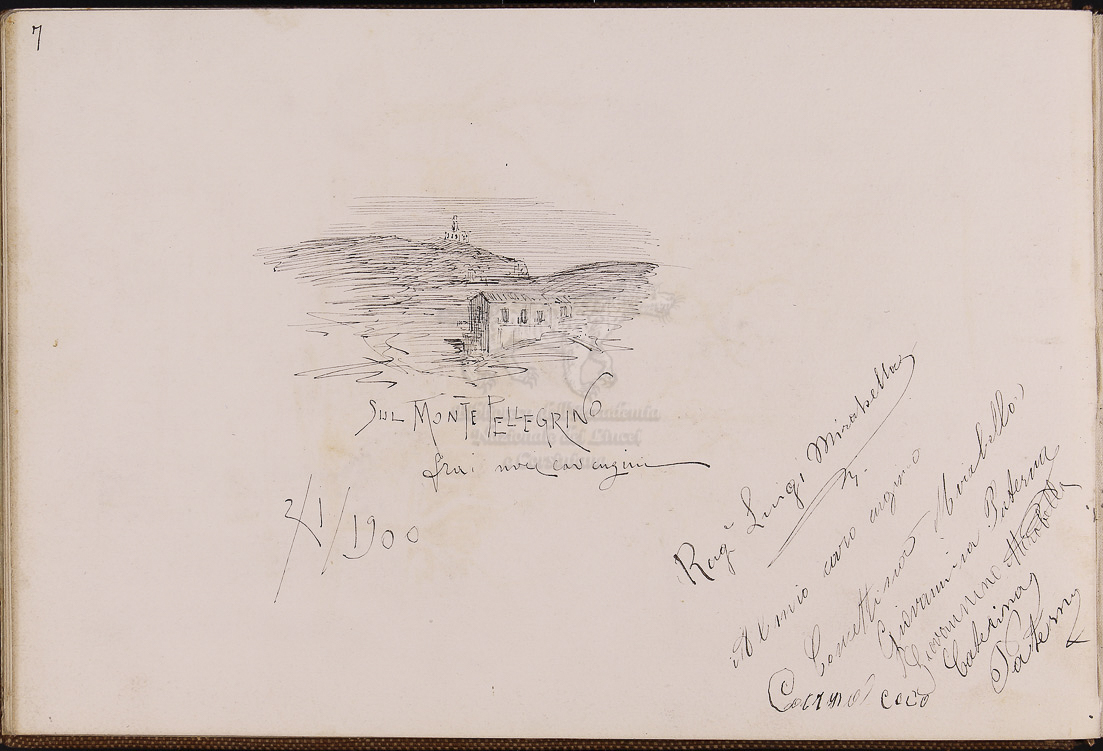 7
SUL MONTE PELLEGRINO
frai
2/1/1900
Rag. Luigi Mirabella
Al mio caro cugino
Concettina Mirabella
Giovannina Paterna
Giovannino Mirabella
Caterina
Paterna